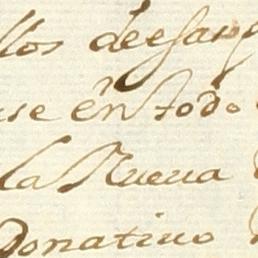 llos de esang
se en todo
la Nueva
Donativo